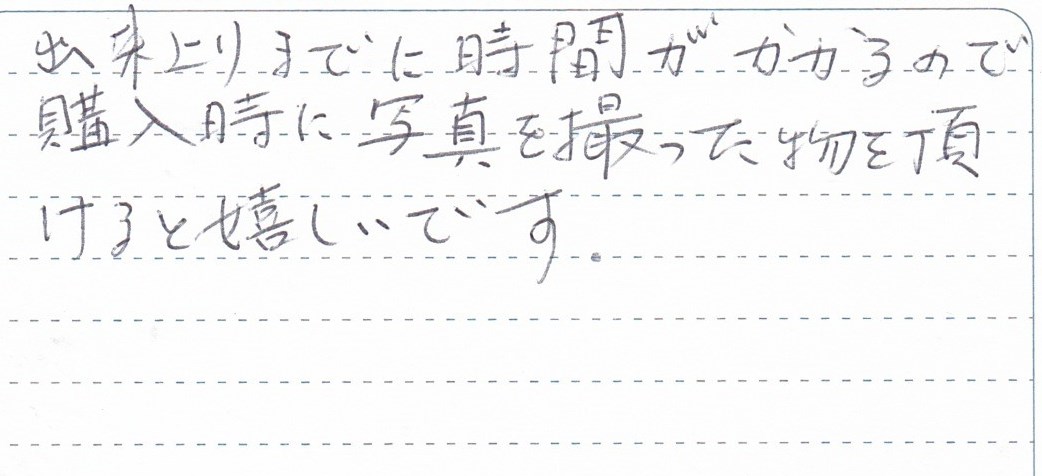 出来上りまでに時間がかかるので
購入時に写真を撮った物を頂
けると嬉しいです.